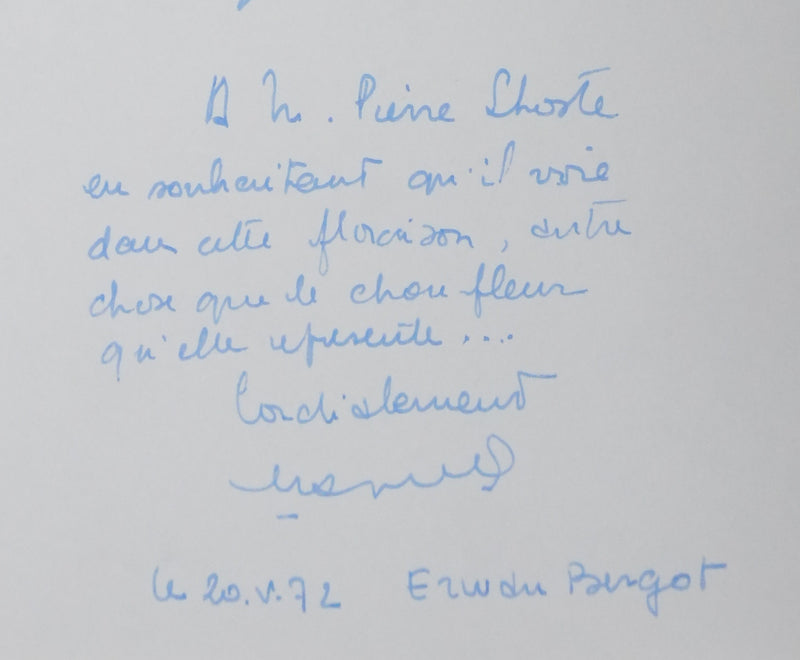 A M. Pierre Lhoste
en souhaitant qu'il voie
dans cette floraison, autre
chose que le chou fleur
qu'elle represente....
Cordialement
le 20.V.72 Erwan Bergot